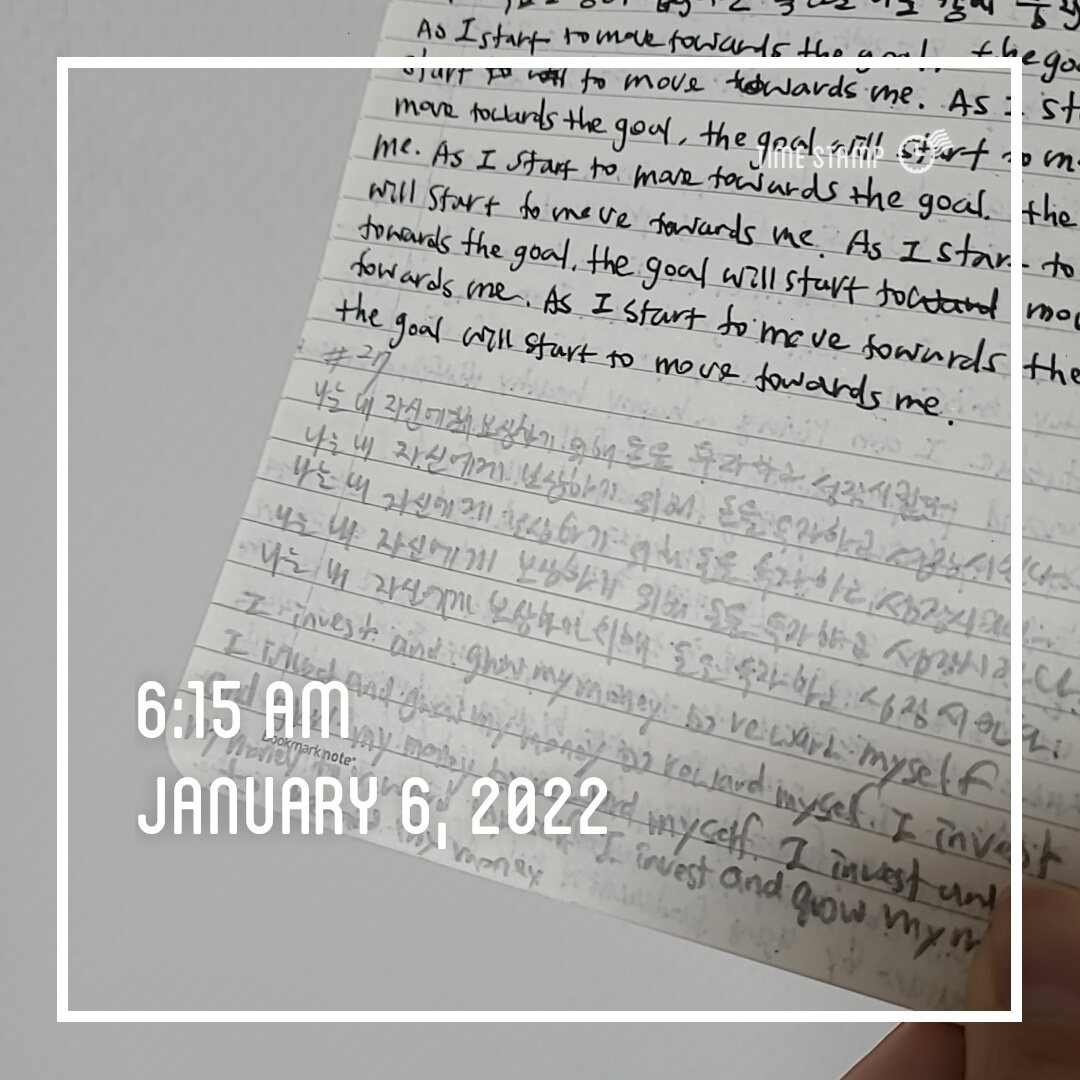 As I start to move towards the goal, the goa
start to to move towards me. As I st
move towards the goal, the goal will start to m
me. As I start to move towards the goal. the
will start to move towards me. As I start to
towards the goal, the goal will start toward mov
towards me. As I start to move towards the
the goal will start to move towards me.
#27
나는 내 자신에게 보상하기 위해 돈을 투자하고 성장시킨다
나는 내 자신에게 보상하기 위해 돈을 투자하고 성장시킨다
나는 내 자신에게 보상하기 위해 돈을 투자하고 성장시킨다
나는 내 자신에게 보상하기 위해 돈을 투자하고 성장시킨다
나는 내 자신에게 보상하기 위해 돈을 투자하고 성장시킨다.
I invest and grow my money to reward myself
I invest and grow my money to reward myself. I invest
and grow my money to reward myself. I invest and
my money I invest and grow my m
my money
bookmark note
TIME STAMP
6:15 AM
JANUARY 6, 2022